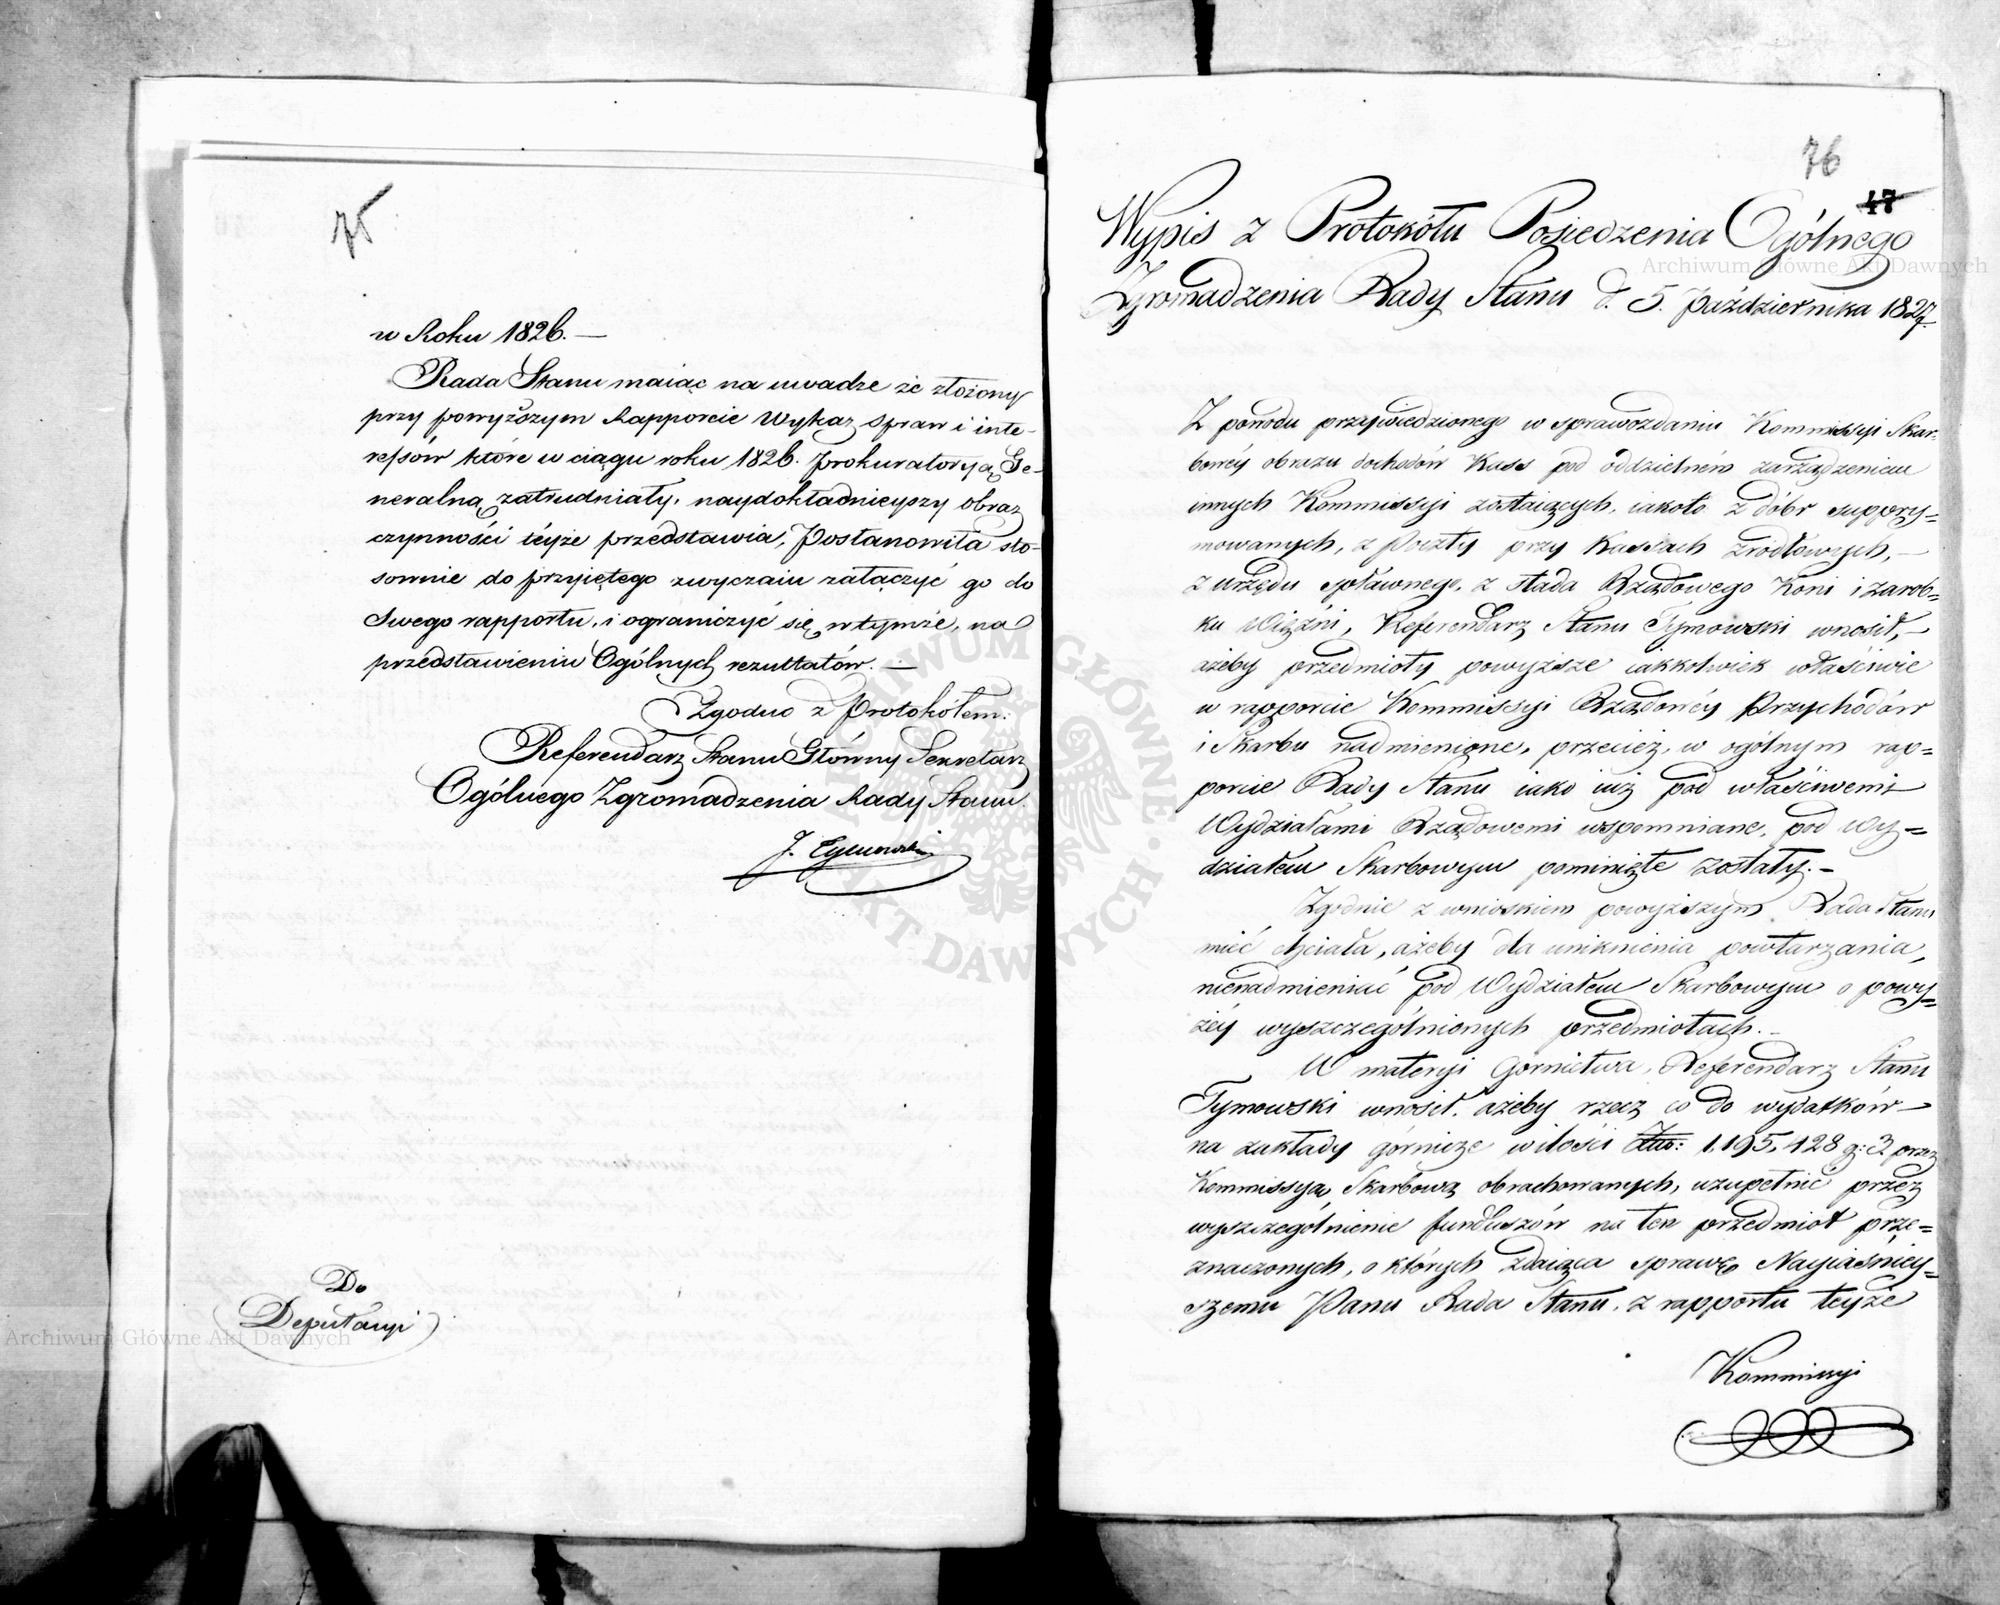 75
w Roku 1826. —
Rada Stanu maiąc na uwadze że złożony
przy powyższym Rapporcie Wykaz spraw i inte-
ressów które w ciągu roku 1826. Prokuratoryą Ge-
neralną zatrudniały, naydokładnieyszy obraz
czynności téyże przedstawia, Postanowiła sto-
sownie do przyiętego zwyczaiu załączyć go do
Swego rapportu, i ograniczyć się w tymże, na
przedstawieniu Ogólnych rezultatów. —
Zgodno z Protokółem.
Referendarz Stanu Główny Sekretarz
Ogólnego Zgromadzenia Rady Stanu.
J. Tymowski
Do
Deputacyi
76
47
Wypis z Protokółu Posiedzenia Ogólnego
Zgromadzenia Rady Stanu d. 5. Października 1827.
Z powodu przywiedzionego w sprawozdaniu Kommissyi Skar-
bowéy obrazu dochodów Kass pod oddzielném zarządzeniem
innych Kommissyi zostaiących, iakoto z dóbr suppry=
mowanych, z Poczty przy Kassach źródłowych, —
z urzędu spławnego, z stada Rządowego Koni i zarob=
ku Więźni, Referendarz Stanu Tymowski wnosił, —
ażeby przedmioty powyższe iakkolwiek właściwie
w rapporcie Kommissyi Rządowéy Przychodów
i Skarbu nadmienione, przecież, w ogólnym rap=
porcie Rady Stanu iako iuż pod właściwemi
Wydziałami Rządowemi wspomniane, pod Wy=
działem Skarbowym pominięte zostały. —
Zgodnie z wnioskiem powyższym Rada Stanu
mieć chciała, ażeby dla uniknienia powtarzania,
nienadmieniać pod Wydziałem Skarbowym o powy=
żéy wyszczególnionych przedmiotach. —
W materyi Gornictwa, Referendarz Stanu
Tymowski wnosił, ażeby rzecz co do wydatków —
na zakłady górnicze w ilości Złtt: 1,195,428 g: 3 przez
Kommissyą Skarbową obrachowanych, uzupełnić przez
wyszczególnienie funduszów na ten przedmiot prze=
znaczonych, o których zdaiąca sprawę Nayiaśniey=
szemu Panu Rada Stanu, z rapportu teyże
Kommissyi
Archiwum Główne Akt Dawnych
Archiwum Główne Akt Dawnych
ARCHIWUM GŁÓWNE · AKT DAWNYCH ·